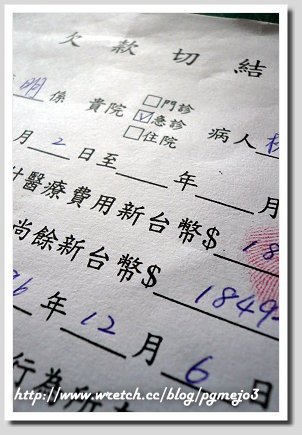 欠款切結
明 係 貴院 □門診 ☑急診 □住院 病人
月 2 日至 年 月
醫療費用新台幣$ 18
尚餘新台幣$ 1849
96 年 12 月 6 日
行為所
http://www.wretch.cc/blog/pgmejo3